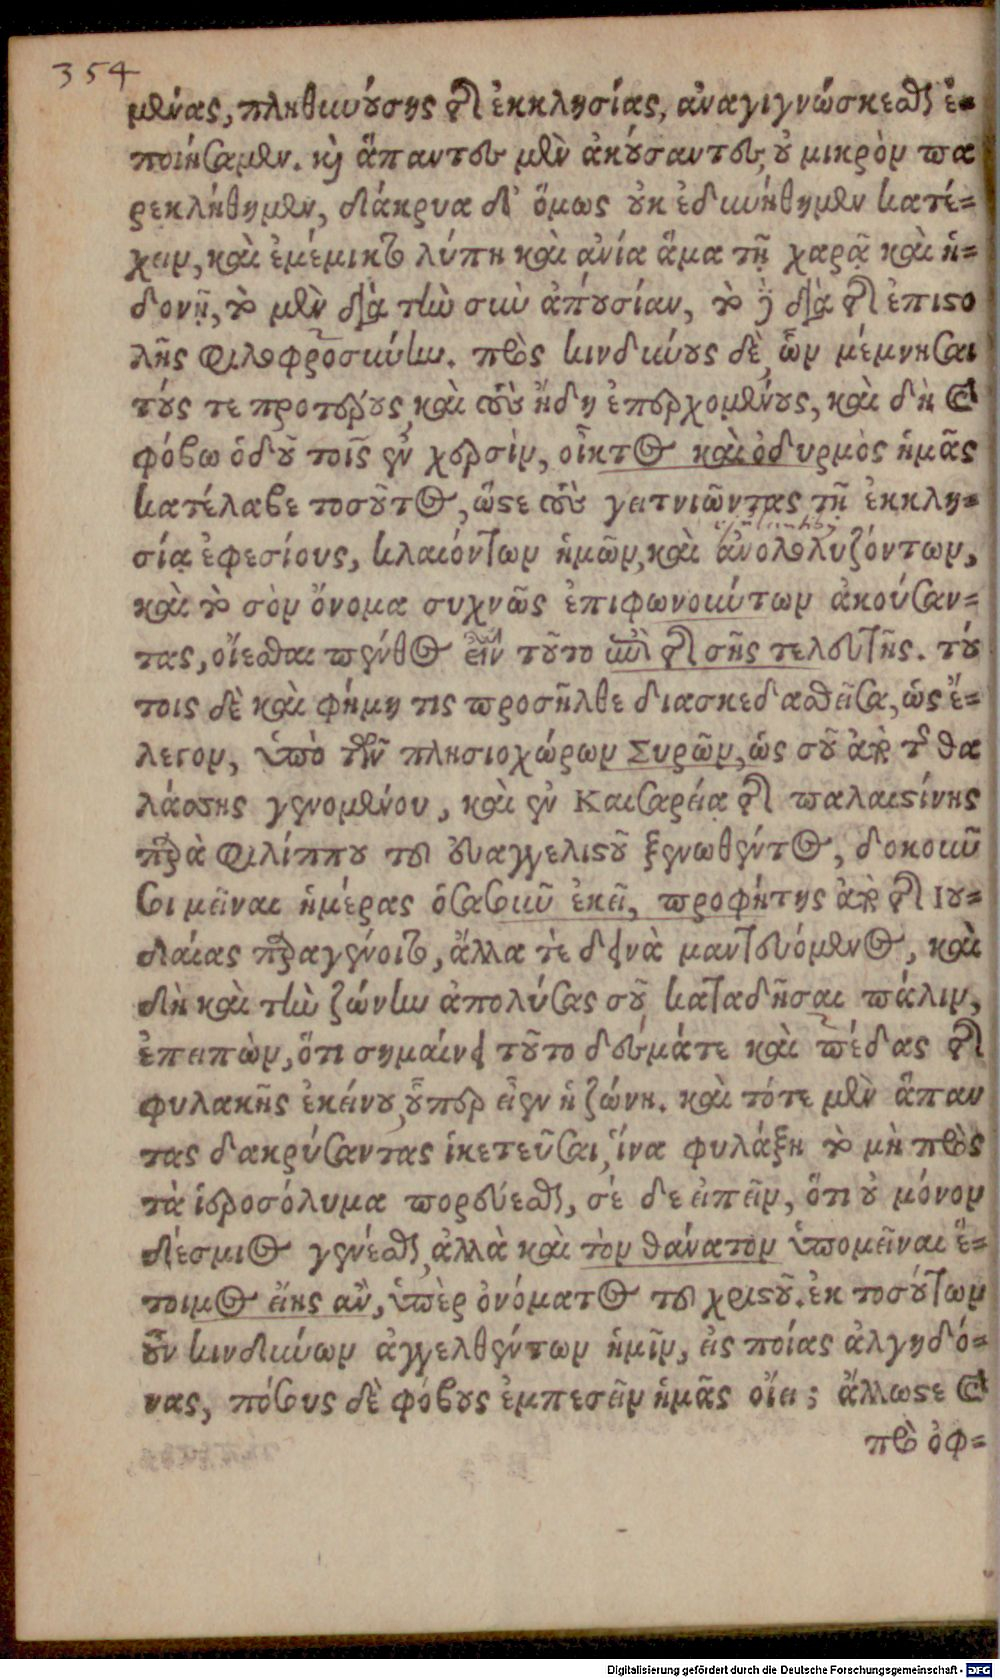 354
μένας, πληθυνούσης τῆς ἐκκλησίας, ἀναγιγνώσκεσθαι ἐ-
ποιήσαμεν. καὶ ἅπαντες μὲν ἀκούσαντες, οὐ μικρὸν πα
ρεκλήθημεν, δάκρυα δ' ὅμως οὐκ ἐδυνήθημεν κατέ-
χειν, καὶ ἐμέμικτο λύπη καὶ ἀνία ἅμα τῇ χαρᾷ καὶ ἡ-
δονῇ, τὸ μὲν διὰ τὴν σὴν ἀπουσίαν, τὸ δὲ διὰ τῆς ἐπιστο
λῆς φιλοφροσύνην. πρὸς κινδύνους δὲ, ὧν μέμνησαι
τούς τε προτέρους, καὶ νῦν ἤδη ἐπερχομένους, καὶ δὴ καὶ
φόβω ὁδοῦ τοῖς ἐν χερσὶν, οἶκτος καὶ ὀδυρμὸς ἡμᾶς
κατέλαβε τοσοῦτος, ὥστε τοὺς γειτνιῶντας τῇ ἐκκλη-
σίᾳ ἐφεσίους, κλαιόντων ἡμῶν, καὶ ἀνολολυζόντων,
καὶ τὸ σὸν ὄνομα συχνῶς ἐπιφωνούντων ἀκούσαν-
τας, οἴεσθαι πένθος εἶναι τοῦτο ἐπὶ τῆς σῆς τελευτῆς. τού
τοις δὲ καὶ φήμη τις προσῆλθε διασκεδασθεῖσα, ὡς ἔ-
λεγον, ὑπὸ τῶν πλησιοχώρων Συρῶν, ὡς σοῦ ἀπὸ τῆς θα
λάσσης γενομένου, καὶ ἐν Καισαρείᾳ τῆς παλαιστίνης
παρὰ Φιλίππου τοῦ εὐαγγελιστοῦ ξενωθέντος, δοκοῦ
σι μεῖναι ἡμέρας ὁσασοῦν ἐκεῖ, προφήτης ἀπὸ τῆς Ἰου-
δαίας παραγένοιτο, ἄλλα τε δεινὰ μαντευόμενος, καὶ
δὴ καὶ τὴν ζώνην ἀπολύσας σοῦ καταδῆσαι πάλιν,
ἐπειπὼν, ὅτι σημαίνει τοῦτο δεσμά τε καὶ πέδας τῆς
φυλακῆς ἐκείνου, οὗπερ εἴη ἡ ζώνη. καὶ τότε μὲν ἅπαν
τας δακρύσαντας ἱκετεῦσαι, ἵνα φυλάξῃ τὸ μὴ πρὸς
τὰ ἱεροσόλυμα πορεύεσθαι, σέ δε εἰπεῖν, ὅτι οὐ μόνον
δέσμιος γενέσθαι, ἀλλὰ καὶ τὸν θάνατον ὑπομεῖναι ἕ-
τοιμος εἴης ἂν, ὑπὲρ ὀνόματος τοῦ χριστοῦ. ἐκ τοσούτων
οὖν κινδύνων ἀγγελθέντων ἡμῖν, εἰς ποίας ἀλγηδό-
νας, πόσους δὲ φόβους ἐμπεσεῖν ἡμᾶς οἴει; ἄλλωστε καὶ
πρὸ ὀφ-
Digitalisierung gefördert durch die Deutsche Forschungsgemeinschaft - DFG